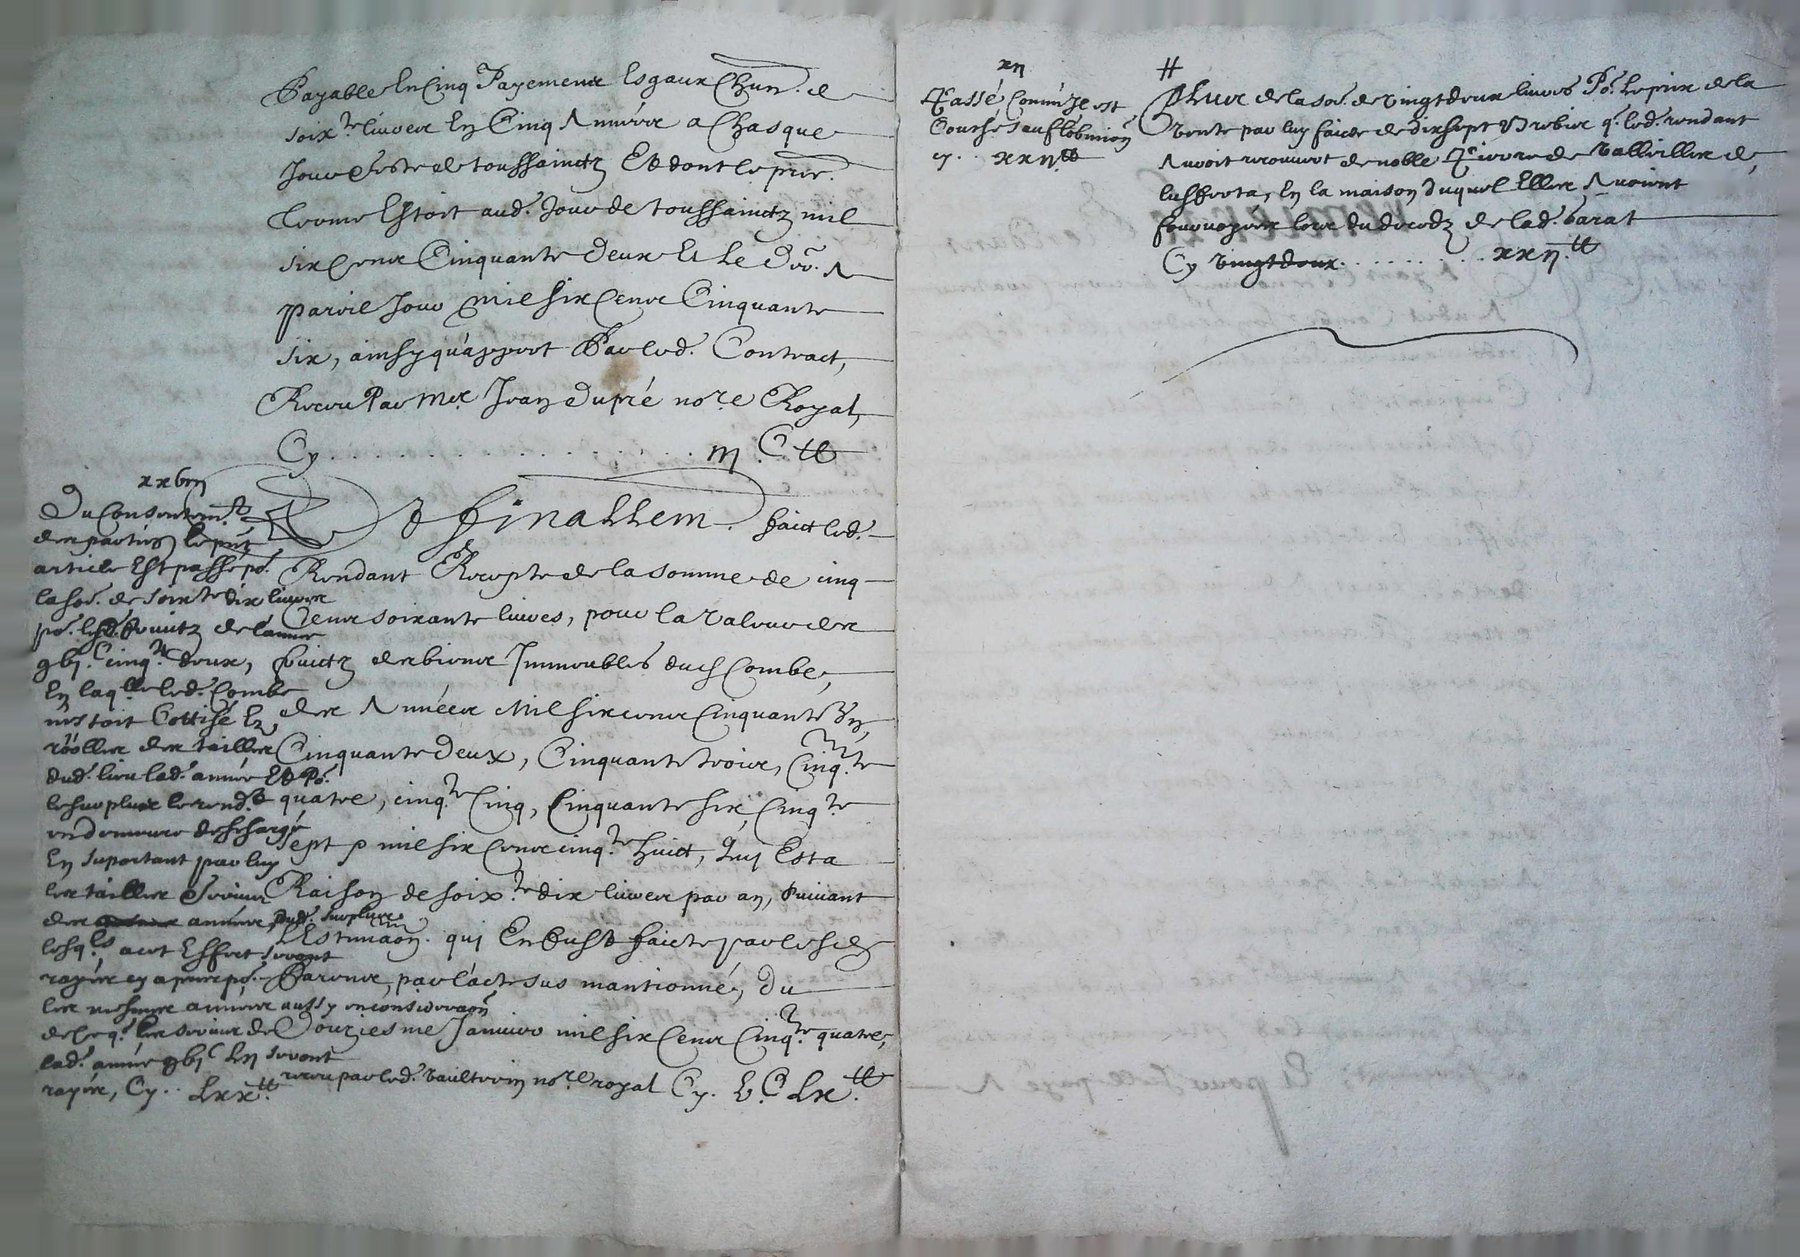 Payable En Cinq Payemens Esgaux Chun. de
soix.te livres En Cinq Années a Chasque
Jour feste de toussainctz Et dont le prer.
terme Estoit aud. Jour de toussainctz mil
six Cens Cinquante deux Et Le der. A
pareil Jour mil six Cens Cinquante
six, ainsy qu'appert Par led. Contract,
Receu Par Me. Jean dupré no.re Royal,
Cy . . . . . . . . . . . iij.C ₶
Et finallem. faict led.
Rendant Recepte de la somme de cinq
Cens soixante livres, pour la valeur des
fruictz des biens Immeubles dud. Combe,
des Années Mil six cens Cinquante Un,
Cinquante deux, Cinquante trois, Cinq.te
quatre, cinq.te Cinq, Cinquante six, Cinq.te
sept & mil six Cens cinq.te huict, quj Est a
Raison de soix.te dix livres par an, suivant
L'Estimaon. quj En fust faicte par lesd.
Parens, par l'acte sus mantionné, du
Douziesme Janvier mil six Cens Cinq.te quatre,
receu par led. vaultrin no.re royal Cy. V.C Lx.₶
xxviij
Du Consentem.t
des parties le pnt
article Est passé po.
la so.e de soix.te dix livres
po. les fruictz de l'annee
gbj.C cinq.te deux,
En laq.lle led. Combe
n'estoit Cottisé En
rôolles des tailles
dud. lieu lad. année Et Po.
le surplus le rend.t
en demeure deschargé
En suportant par luy
les tailles
des années dud. surplus
lesq.les a cet Effect seront
rayées cy apres po.
les mesmes années aussy en consideraon
de ce q. les
lad. année gbj.C Ln seront
rayées, Cy . . Lxx ₶.
xij
Passé Comme Il est
Couché sauf l'obmion
cy . . xxij ₶
#
Plus de la so.e de vingt deux livres Po. Le prix de la
vente par luy faicte de dixsept Brebis q. led. rendant
Avoit recouvert de noble Pierre de
En la maison duquel Elles Avoient
lors du decedz de lad. barat
Cy vingt deux . . . . . . . . . xxij.₶